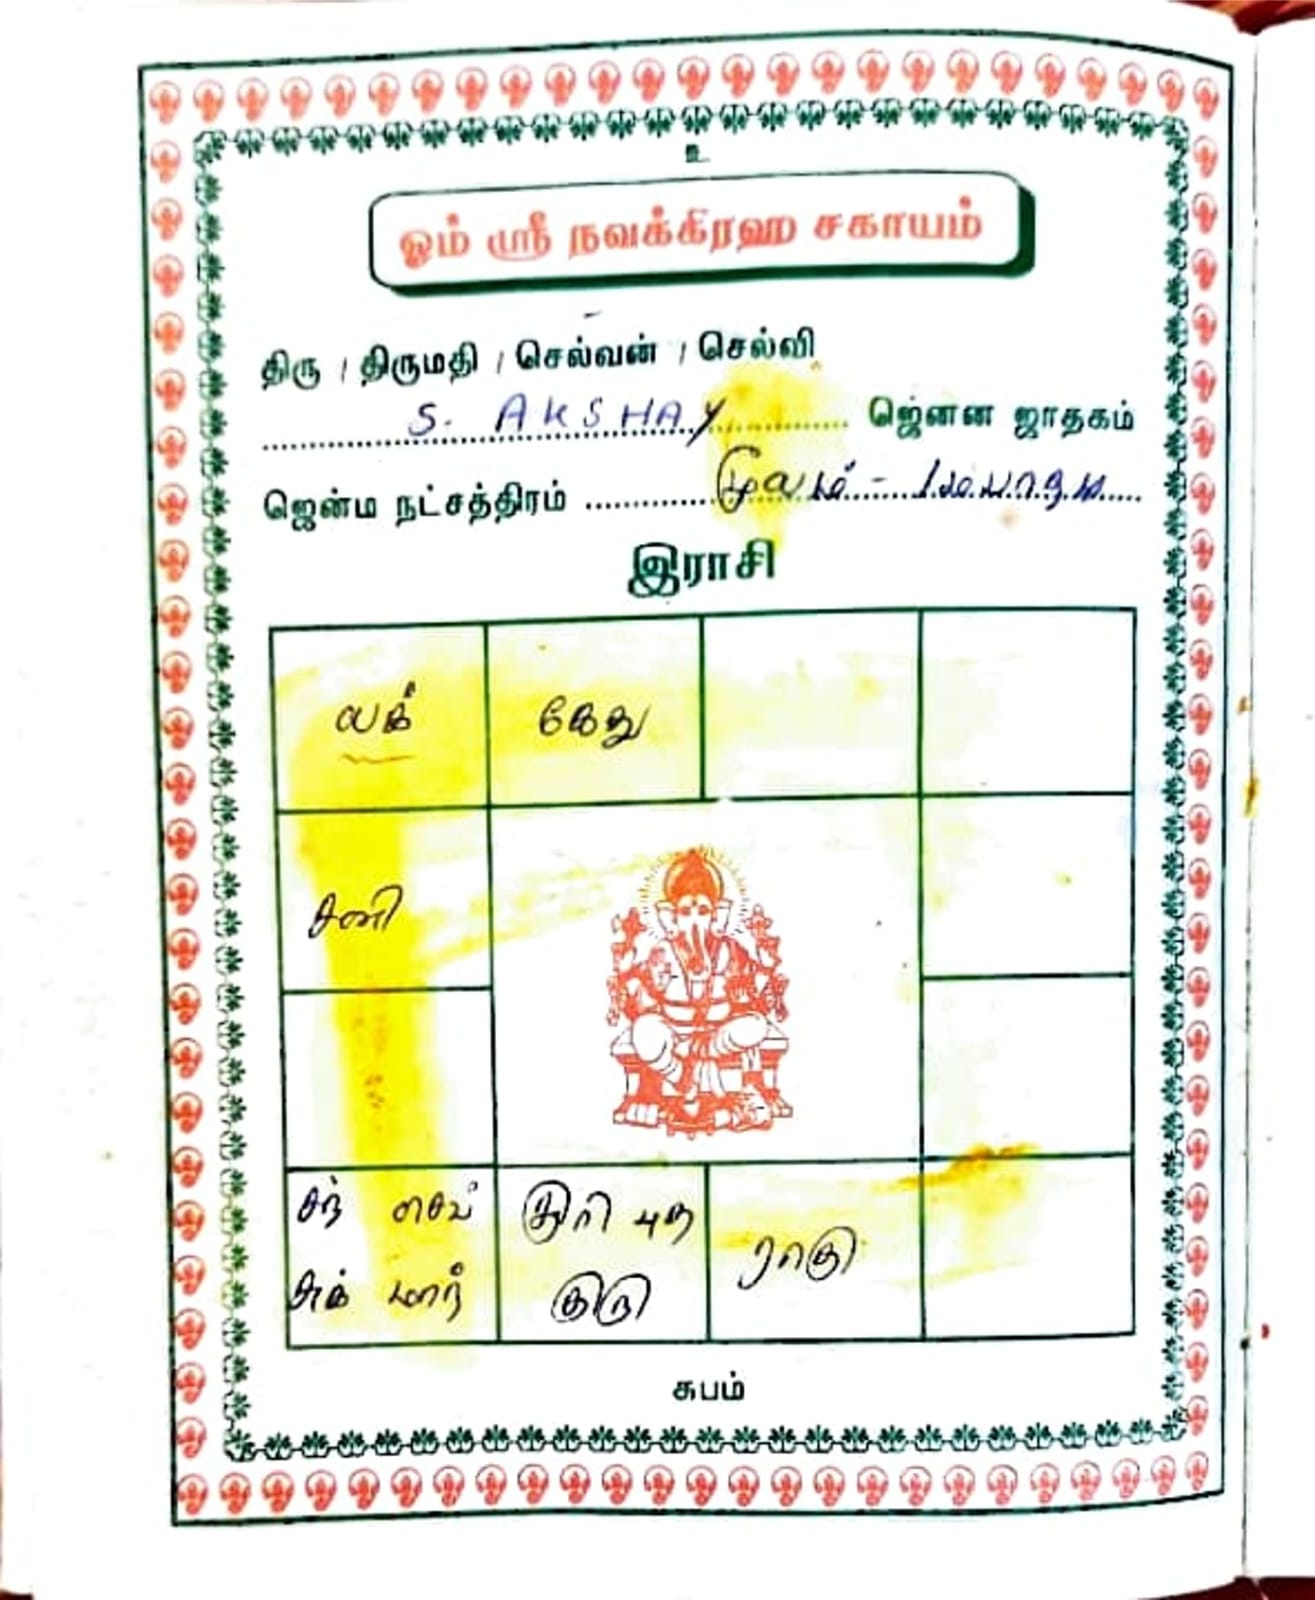 உ
ஓம் ஸ்ரீ நவக்கிரஹ சகாயம்
திரு / திருமதி / செல்வன் / செல்வி
S. AKSHAY ஜெனன ஜாதகம்
ஜென்ம நட்சத்திரம் மூலம் - 1ம் பாதம்
இராசி
லக் கேது
சனி
சந் செவ் சூரி புத
சுக் மாந் குரு ராகு
சுபம்